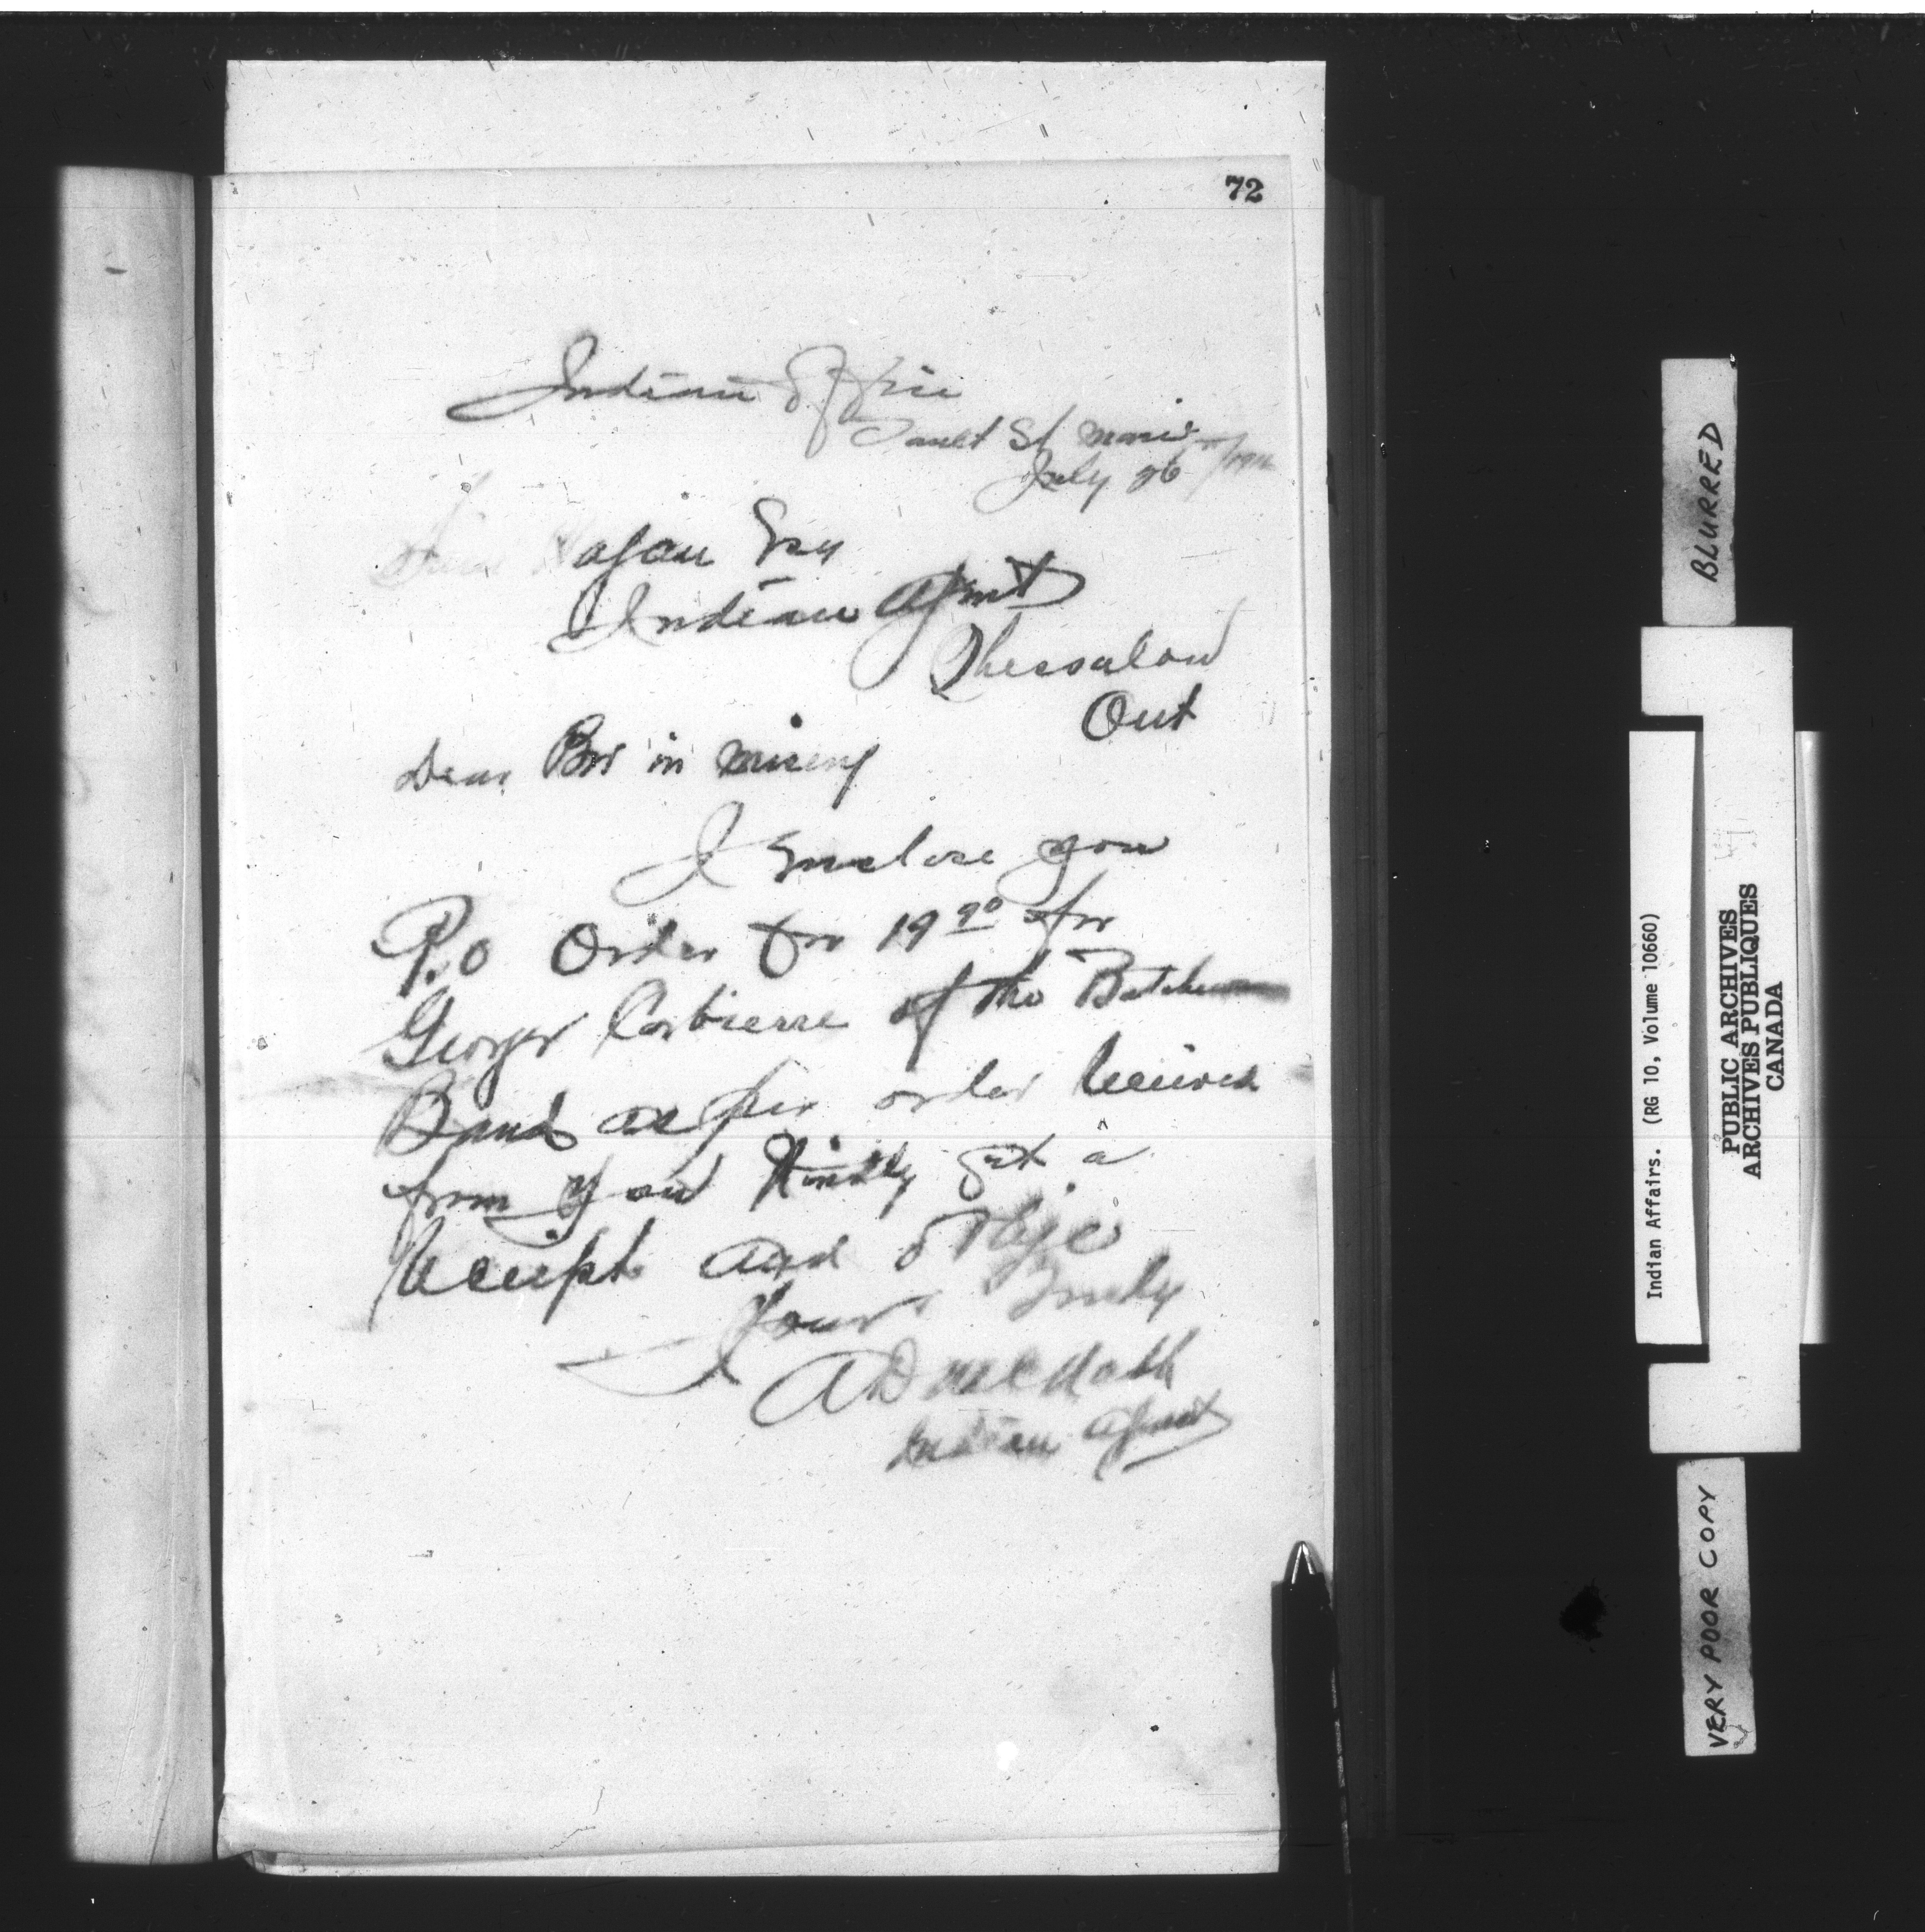 72
Indian Office
Sault St Marie
July 26
Hagan Esq
Indian Agent
Thessalon
Ont
Dear Bro in misery
I Enclose you
P.O Order for 19 90 for
George Corbierre of the Batchewana
Band as per order received
from you Kindly get a
receipt and oblige
Yours Truly
A D McNabb
Indian Agent
BLURRED
Indian Affairs. (RG 10, Volume 10660)
PUBLIC ARCHIVES
ARCHIVES PUBLIQUES
CANADA
VERY POOR COPY